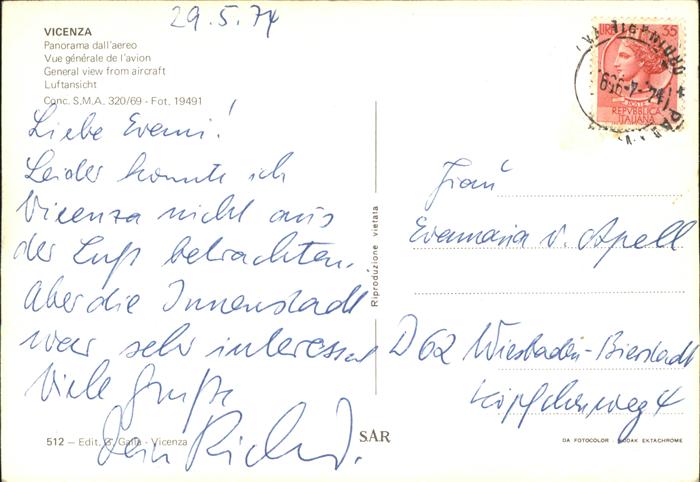 29.5.74
VICENZA
Panorama dall'aereo
Vue générale de l'avion
General view from aircraft
Luftansicht
Conc. S.M.A. 320/69 - Fot. 19491
Liebe Evemi!
Leider konnte ich
Vicenza nicht aus
der Luft betrachten.
Aber die Innenstadt
war sehr interessant
Viele Grüße
Dein Richard.
512 - Edit. G. Galla - Vicenza
SAR
Riproduzione vietata
LIRE 35
POSTE
REPVBBLICA
ITALIANA
Frau
Evamaria v. Apell
D 62 Wiesbaden-Bierstadt
Köpfchenweg 4
DA FOTOCOLOR - KODAK EKTACHROME